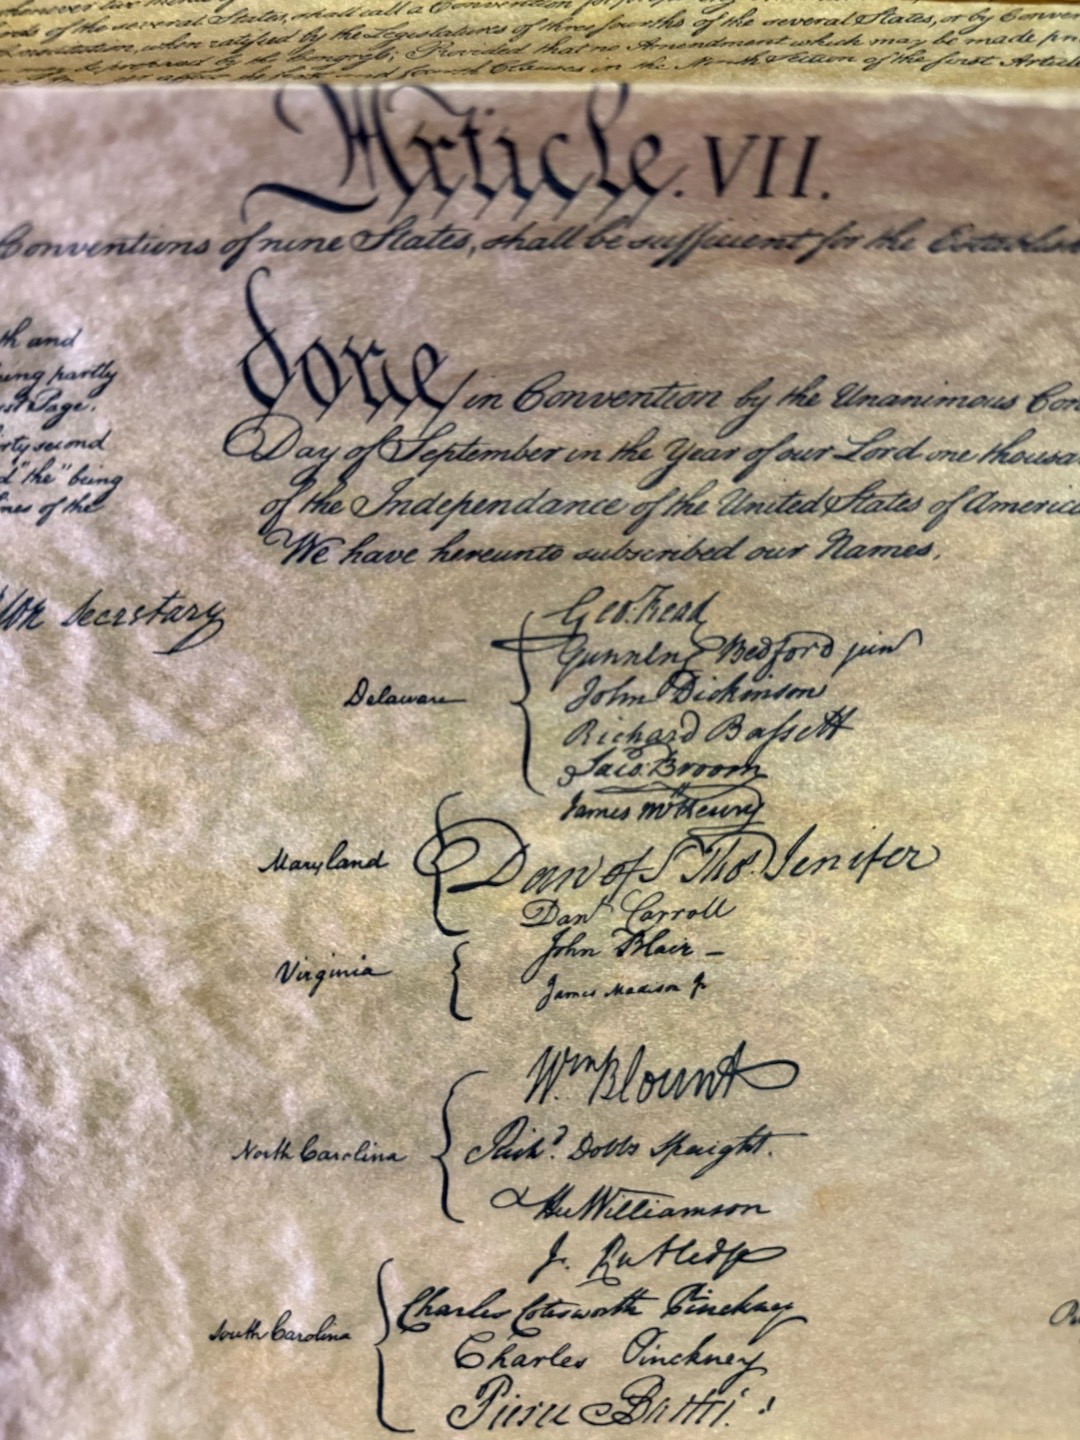 whenever two thirds
of the several States, shall call a Convention for
when ratified by the Legislatures of three fourths of the several States, or by Conven
proposed by the Congress; Provided that no Amendment which may be made pri
and fourth Clauses in the Ninth Section of the first Article
Article. VII.
Conventions of nine States, shall be sufficient for the Establish
th and
ing partly
st Page.
rty second
d "the" being
nes of the
done in Convention by the Unanimous Con
Day of September in the Year of our Lord one thousa
of the Independance of the United States of America
We have hereunto subscribed our Names,
Secretary
Delaware
Geo: Read
Gunning Bedford jun
John Dickinson
Richard Bassett
Jaco: Broom
Maryland
James McHenry
Dan of St Thos. Jenifer
Danl Carroll
Virginia
John Blair –
James Madison Jr
North Carolina
Wm. Blount
Richd. Dobbs Spaight.
Hu Williamson
South Carolina
J. Rutledge
Charles Cotesworth Pinckney
Charles Pinckney
Pierce Butler.